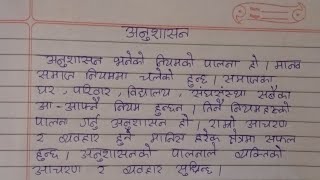 अनुशासन
अनुशासन भनेको नियमको पालना हो । मानव
समाज नियममा चलेको हुन्छ । समाजका
घर, परिवार, विद्यालय, संघसंस्था सबैका
आ-आफ्नै नियम हुन्छन् । तिनै नियमहरुको
पालना गर्नु अनुशासन हो । राम्रो आचरण
र व्यवहार हुने मानिस हरेक क्षेत्रमा सफल
हुन्छ । अनुशासनको पालनाले व्यक्तिको
आचरण र व्यवहार सुध्रिन्छ ।